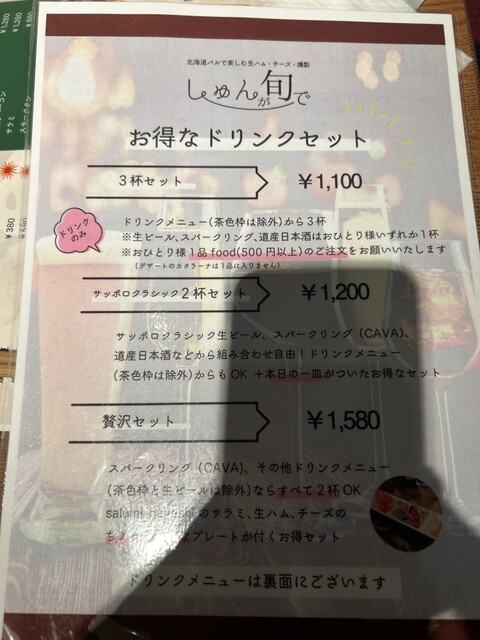 北海道バルで楽しむ生ハム・チーズ・燻製
しゅんが旬で
お得なドリンクセット
3杯セット ¥1,100
ドリンクのみ
ドリンクメニュー(茶色枠は除外)から3杯
※生ビール、スパークリング、道産日本酒はおひとり様いずれか1杯
※おひとり様1品food(500円以上)のご注文をお願いいたします
(デザートのカタラーナは1品に入りません)
サッポロクラシック2杯セット ¥1,200
サッポロクラシック生ビール、スパークリング(CAVA)、
道産日本酒などから組み合わせ自由!ドリンクメニュー
(茶色枠は除外)からもOK +本日の一皿がついたお得なセット
贅沢セット ¥1,580
スパークリング(CAVA)、その他ドリンクメニュー
(茶色枠と生ビールは除外)ならすべて2杯OK
salumi のサラミ、生ハム、チーズの
プレートが付くお得セット
ドリンクメニューは裏面にございます
¥1,280
¥1,280
¥380
サラミ